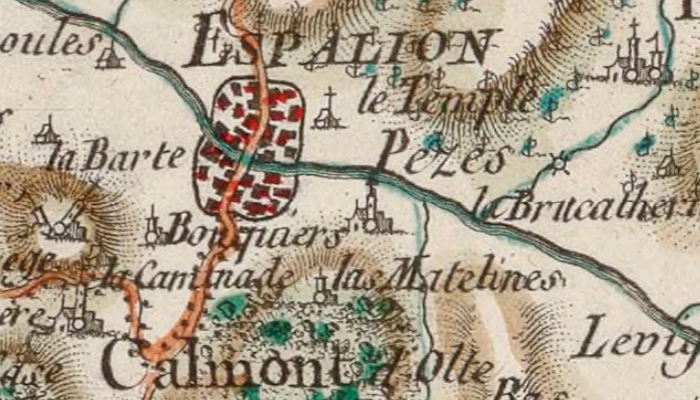 oules
ESPALION
le Temple
la Barte
Pezés
la Brucatheri
Bouquiers
ege
la Caminade
las Matelines
ere
Calmont d'Olte
Levig